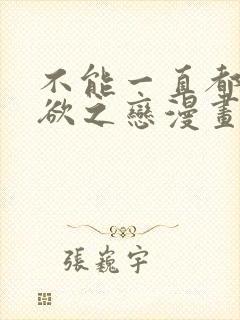 不能一直都
欲之戀漫畫
張巍宇